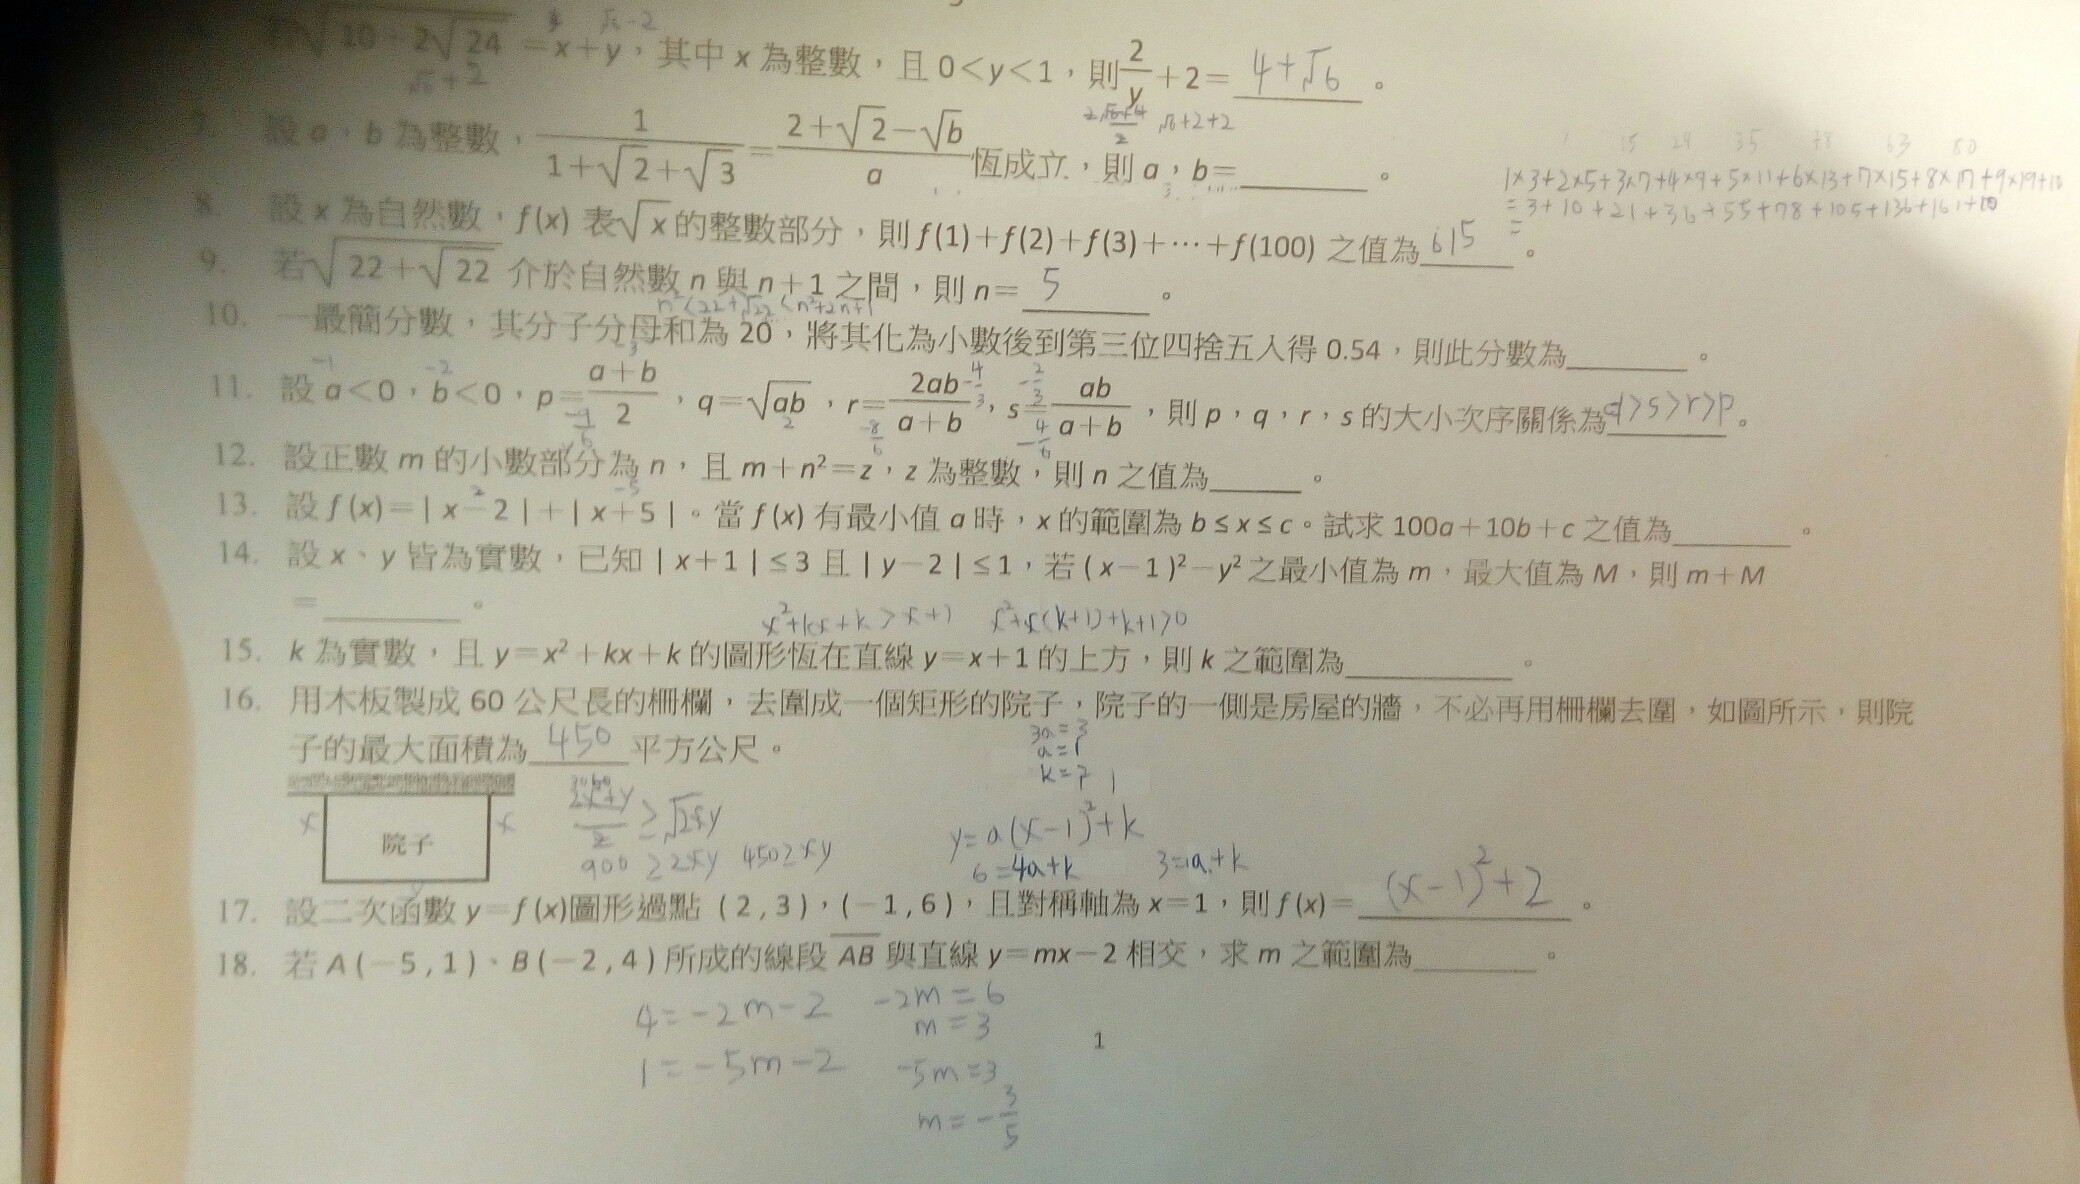 √10－2√24 ＝x＋y，其中 x 為整數，且 0＜y＜1，則 2/y ＋2＝ 4+√6 。
√6-2
√6+2
7. 設 a，b 為整數， 1/(1＋√2＋√3) ＝ (2＋√2－√b)/a 恆成立，則 a，b＝______。
(2√6+4)/2 √6+2+2
15 24 35 48 63 80
1×3+2×5+3×7+4×9+5×11+6×13+7×15+8×17+9×19+10
=3+10+21+36+55+78+105+136+161+10
=
8. 設 x 為自然數，f(x) 表√x的整數部分，則 f(1)＋f(2)＋f(3)＋⋯＋f(100) 之值為 615 。
9. 若√22＋√22 介於自然數 n 與 n＋1 之間，則 n＝ 5 。
n²<22+√22<n²+2n+1
10. 一最簡分數，其分子分母和為 20，將其化為小數後到第三位四捨五入得 0.54，則此分數為______。
-1 -2 -3 -4/3 -2/3
11. 設 a＜0，b＜0，p＝(a＋b)/2，q＝√ab，r＝2ab/(a＋b)，s＝ab/(a＋b)，則 p，q，r，s 的大小次序關係為 q>s>r>p 。
2 -8/6 -4/6
12. 設正數 m 的小數部分為 n，且 m＋n²＝z，z 為整數，則 n 之值為______。
2 -5
13. 設 f (x)＝| x－2 |＋| x＋5 |。當 f (x) 有最小值 a 時，x 的範圍為 b ≤ x ≤ c。試求 100a＋10b＋c 之值為______。
14. 設 x、y 皆為實數，已知 | x＋1 | ≤ 3 且 | y－2 | ≤ 1，若 ( x－1 )²－y² 之最小值為 m，最大值為 M，則 m＋M
＝______。
x²+kx+k>x+1 x²+x(k+1)+k+1>0
15. k 為實數，且 y＝x²＋kx＋k 的圖形恆在直線 y＝x＋1 的上方，則 k 之範圍為______。
16. 用木板製成 60 公尺長的柵欄，去圍成一個矩形的院子，院子的一側是房屋的牆，不必再用柵欄去圍，如圖所示，則院
子的最大面積為 450 平方公尺。
3a=3
a=1
k=2
x 院子 x
y
(2x+y)/2 ≥ √2xy
900 ≥ 2xy 450≥xy
y=a(x-1)²+k
6=4a+k 3=a+k
17. 設二次函數 y＝f (x)圖形過點 ( 2 , 3 )，(－1 , 6 )，且對稱軸為 x＝1，則 f (x)＝ (x-1)²+2 。
18. 若 A (－5 , 1 )、B (－2 , 4 ) 所成的線段 AB 與直線 y＝mx－2 相交，求 m 之範圍為______。
4=-2m-2 -2m=6
m=3
1=-5m-2 -5m=3
m=-3/5
1